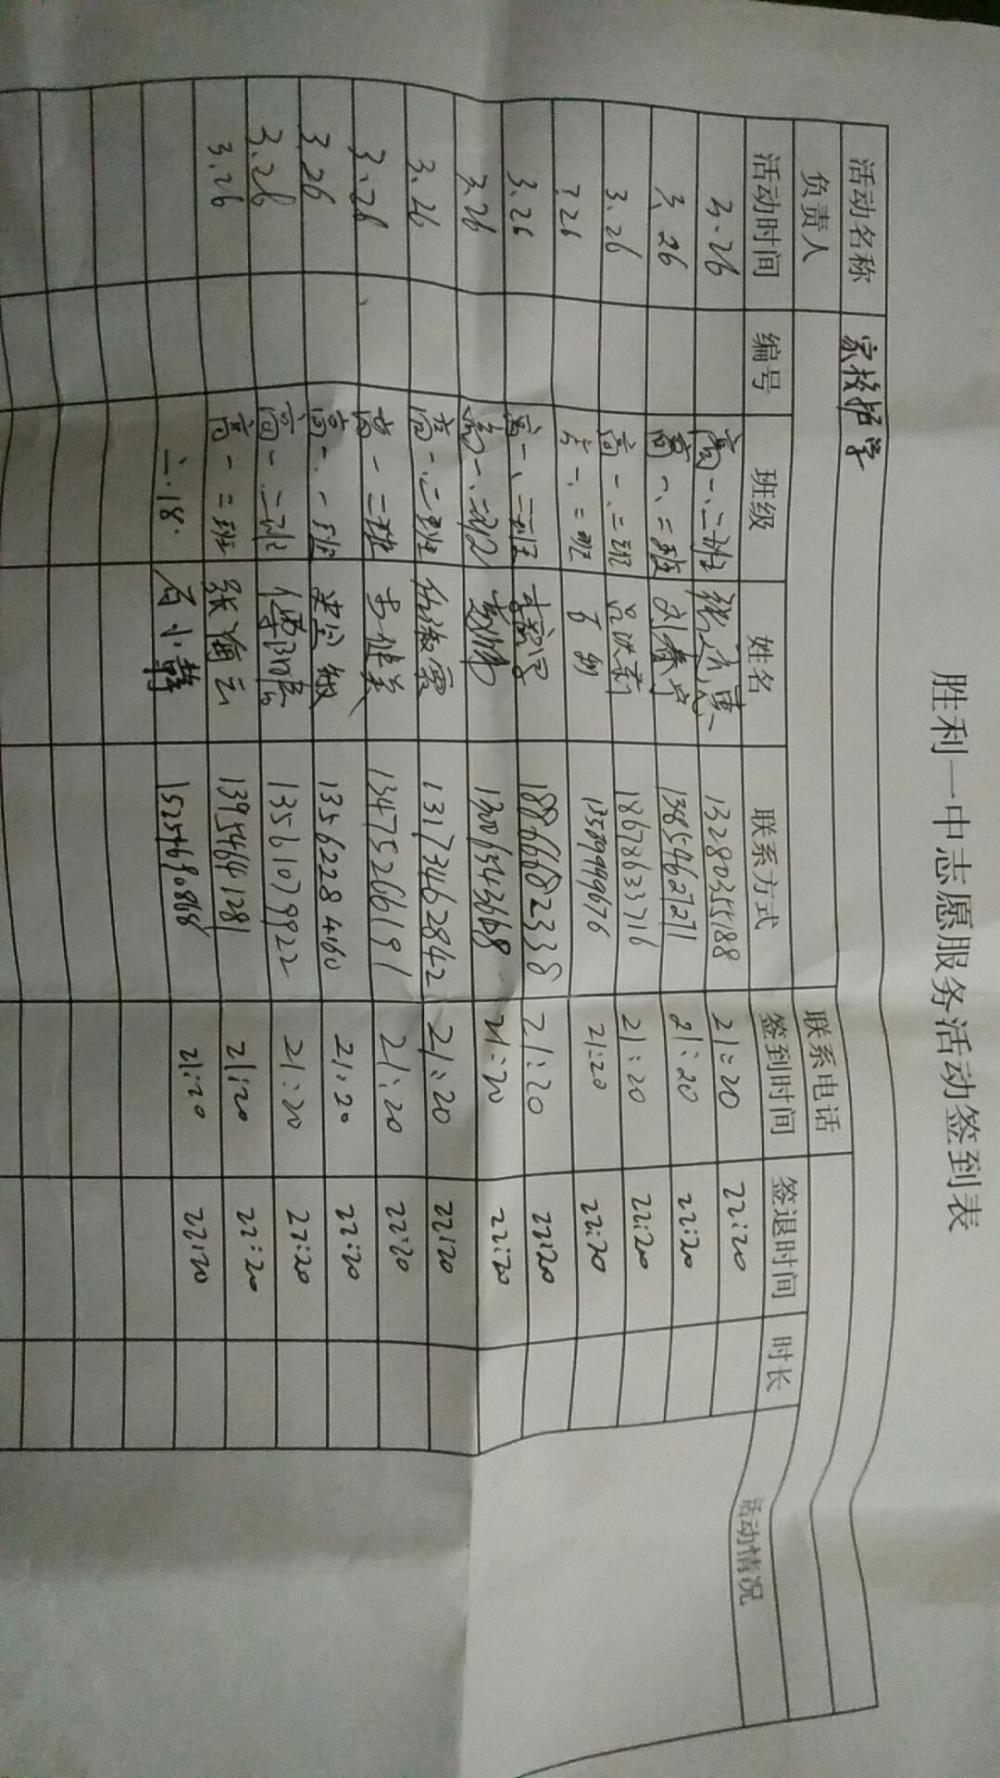 胜利一中志愿服务活动签到表
活动名称 家校护学
负责人 联系电话
活动时间 编号 班级 姓名 联系方式 签到时间 签退时间 时长 活动情况
3.26 高一、二班 13280355188 21:20 22:20
3.26 高一、二班 刘春芦 13854627271 21:20 22:20
3.26 高一、二班 18678633716 21:20 22:20
3.26 高一、二班 13589999676 21:20 22:20
3.26 高一、二班 18866682338 21:20 22:20
3.26 高一、二班 13006543668 21:20 22:20
3.26 高一、二班 13173462842 21:20 22:20
3.26 高一二班 13475266191 21:20 22:20
3.26 高一、一班 13562284460 21:20 22:20
3.26 高一、二班 13561079922 21:20 22:20
3.26 高一二班 张海云 13954641281 21:20 22:20
二.18. 石小静 15254680868 21:20 22:20